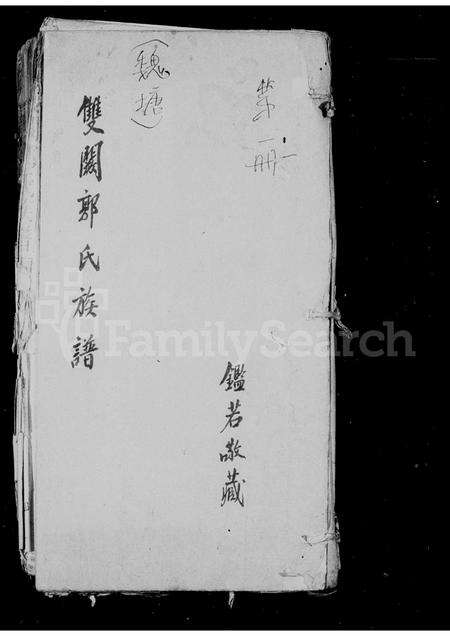 第一册
(魏塘)
雙闕郭氏族譜
鑑若敬藏
FamilySearch